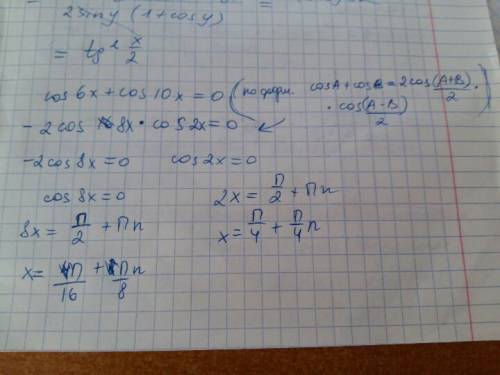 2 siny (1+cosy)
= tg² x/2
cos 6x + cos 10x = 0 (по форм. cosA + cosB = 2cos (A+B)/2 ·
· cos (A-B)/2)
- 2 cos 8x · cos 2x = 0
-2 cos 8x = 0 cos 2x = 0
cos 8x = 0 2x = П/2 + Пn
8x = П/2 + Пn x = П/4 + П/4 n
x = П/16 + Пn/8